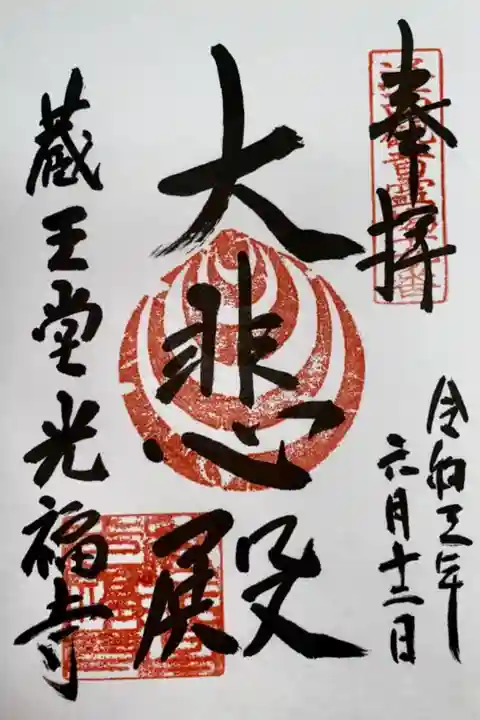 奉拝
令和五年
六月十二日
大悲殿
蔵王堂光福寺